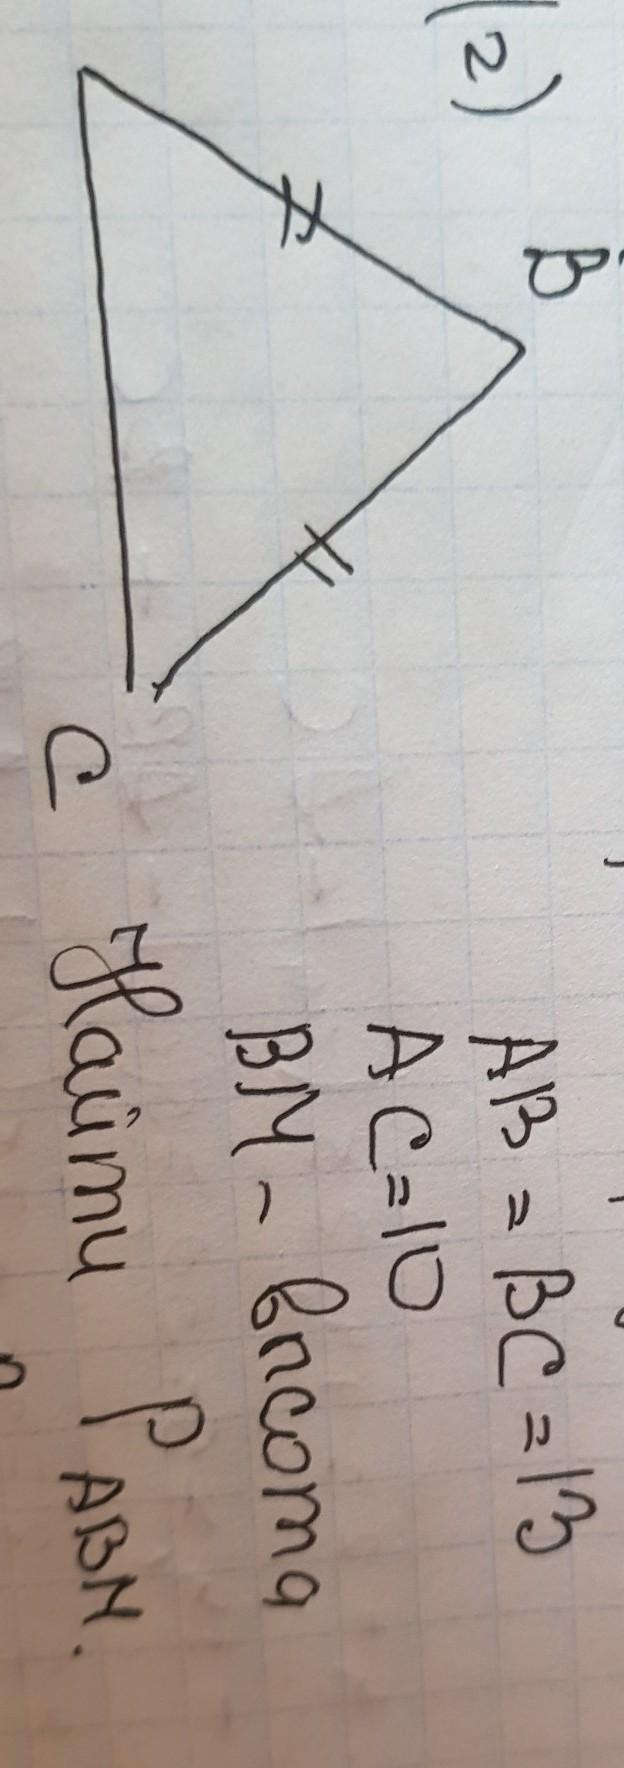 (2)
B
C
AB = BC = 13
AC = 10
BM - высота
Найти P ABM.